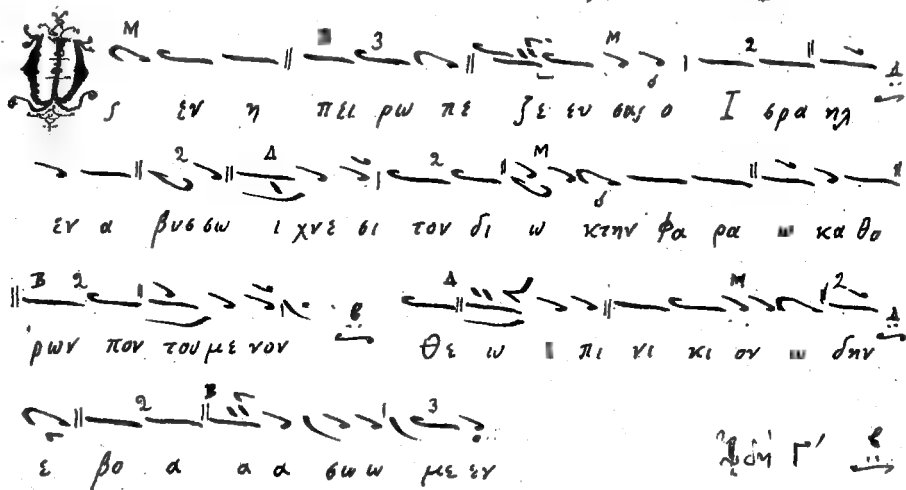 Ως εν η πει ρω πε ζε ευ σας ο Ι σρα ηλ
εν α βυσ σω ι χνε σι τον δι ω κτην φα ρα ω κα θο
ρων πον του με νον Θε ω ε πι νι κι ον ω δην
ε βο α α α σω ω με εν
Ωδή Γ΄